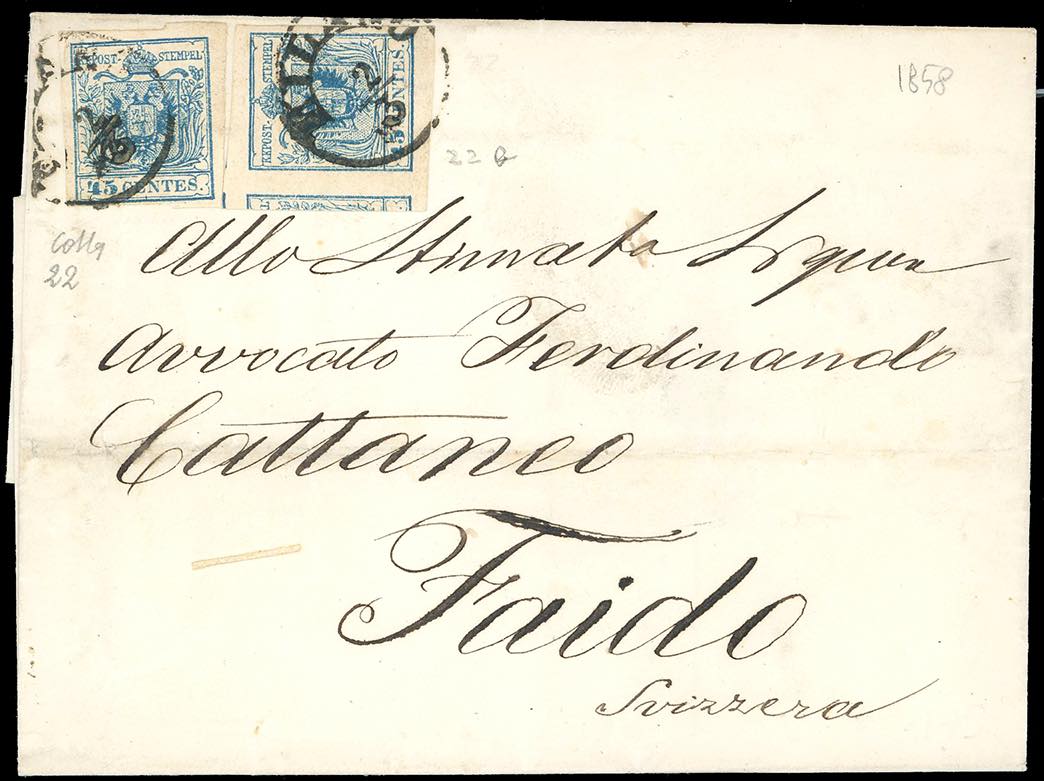 KKPOST-STEMPEL
45 CENTES.
KKPOST-STEMPEL
45 CENTES.
MIL
1858
22
22
Allo Stimato Signor
Avvocato Ferdinando
Cattaneo
Faido
Svizzera